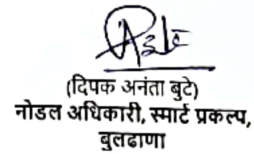 (दिपक अनंता बुटे)
नोडल अधिकारी, स्मार्ट प्रकल्प,
बुलढाणा